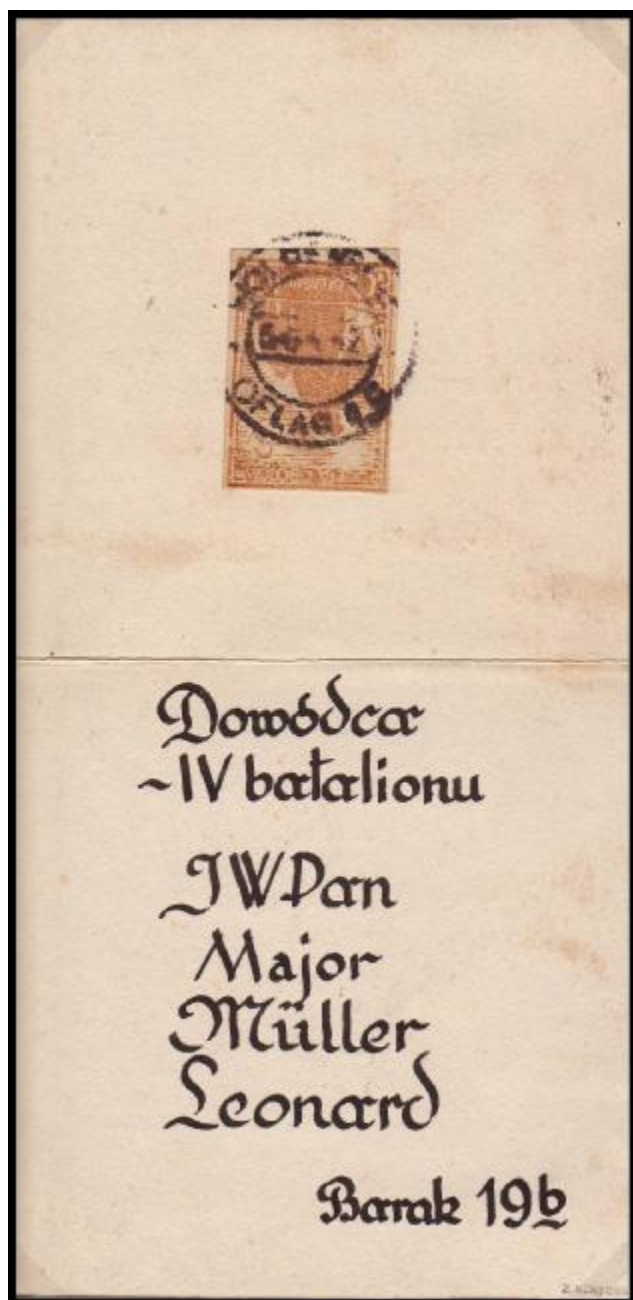 OFLAG
Dowódca
~IV batalionu
JWPan
Major
Müller
Leonard
Barak 19b